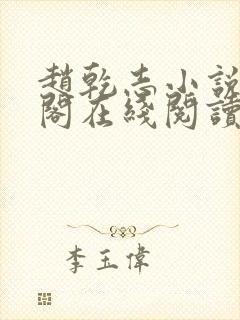 趙乾志小說
閣在綫閱讀
李玉偉